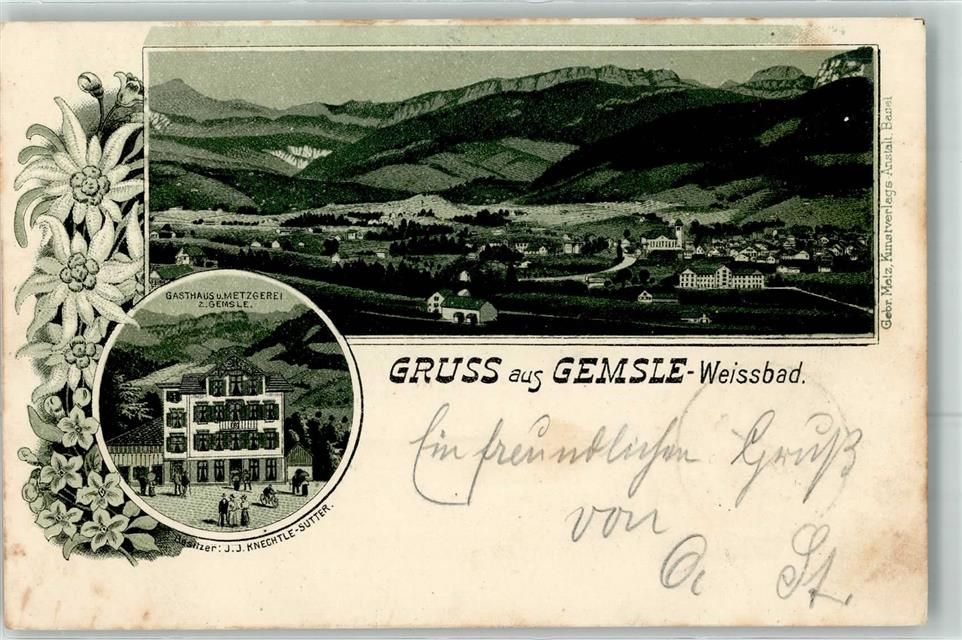 GASTHAUS U. METZGEREI
Z. GEMSLE.
Besitzer: J. J. KNECHTLE-SUTTER.
Gebr. Metz, Kunstverlags Anstalt, Basel
GRUSS aus GEMSLE-Weissbad.
Ein freundlichen Gruß
von
A. St.